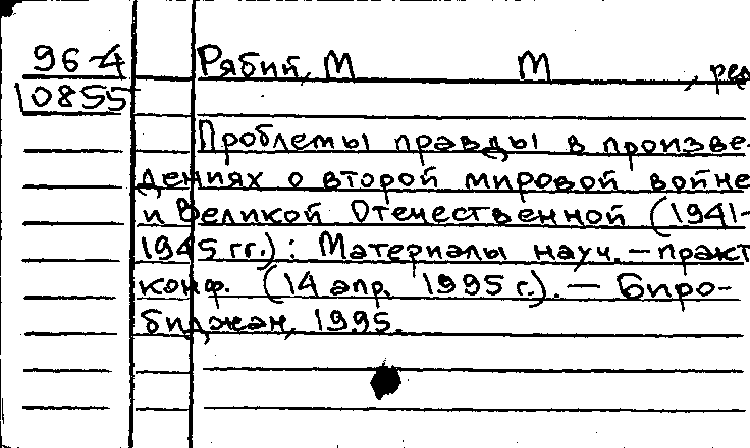 96-4 Рябий, М М , ред
10855
Проблемы правды в произве-
дениях о второй мировой войне
и Великой Отечественной (1941-
1945 гг.): Материалы науч.-практ
конф. (14 апр. 1995 г.). — Биро-
биджан, 1995.